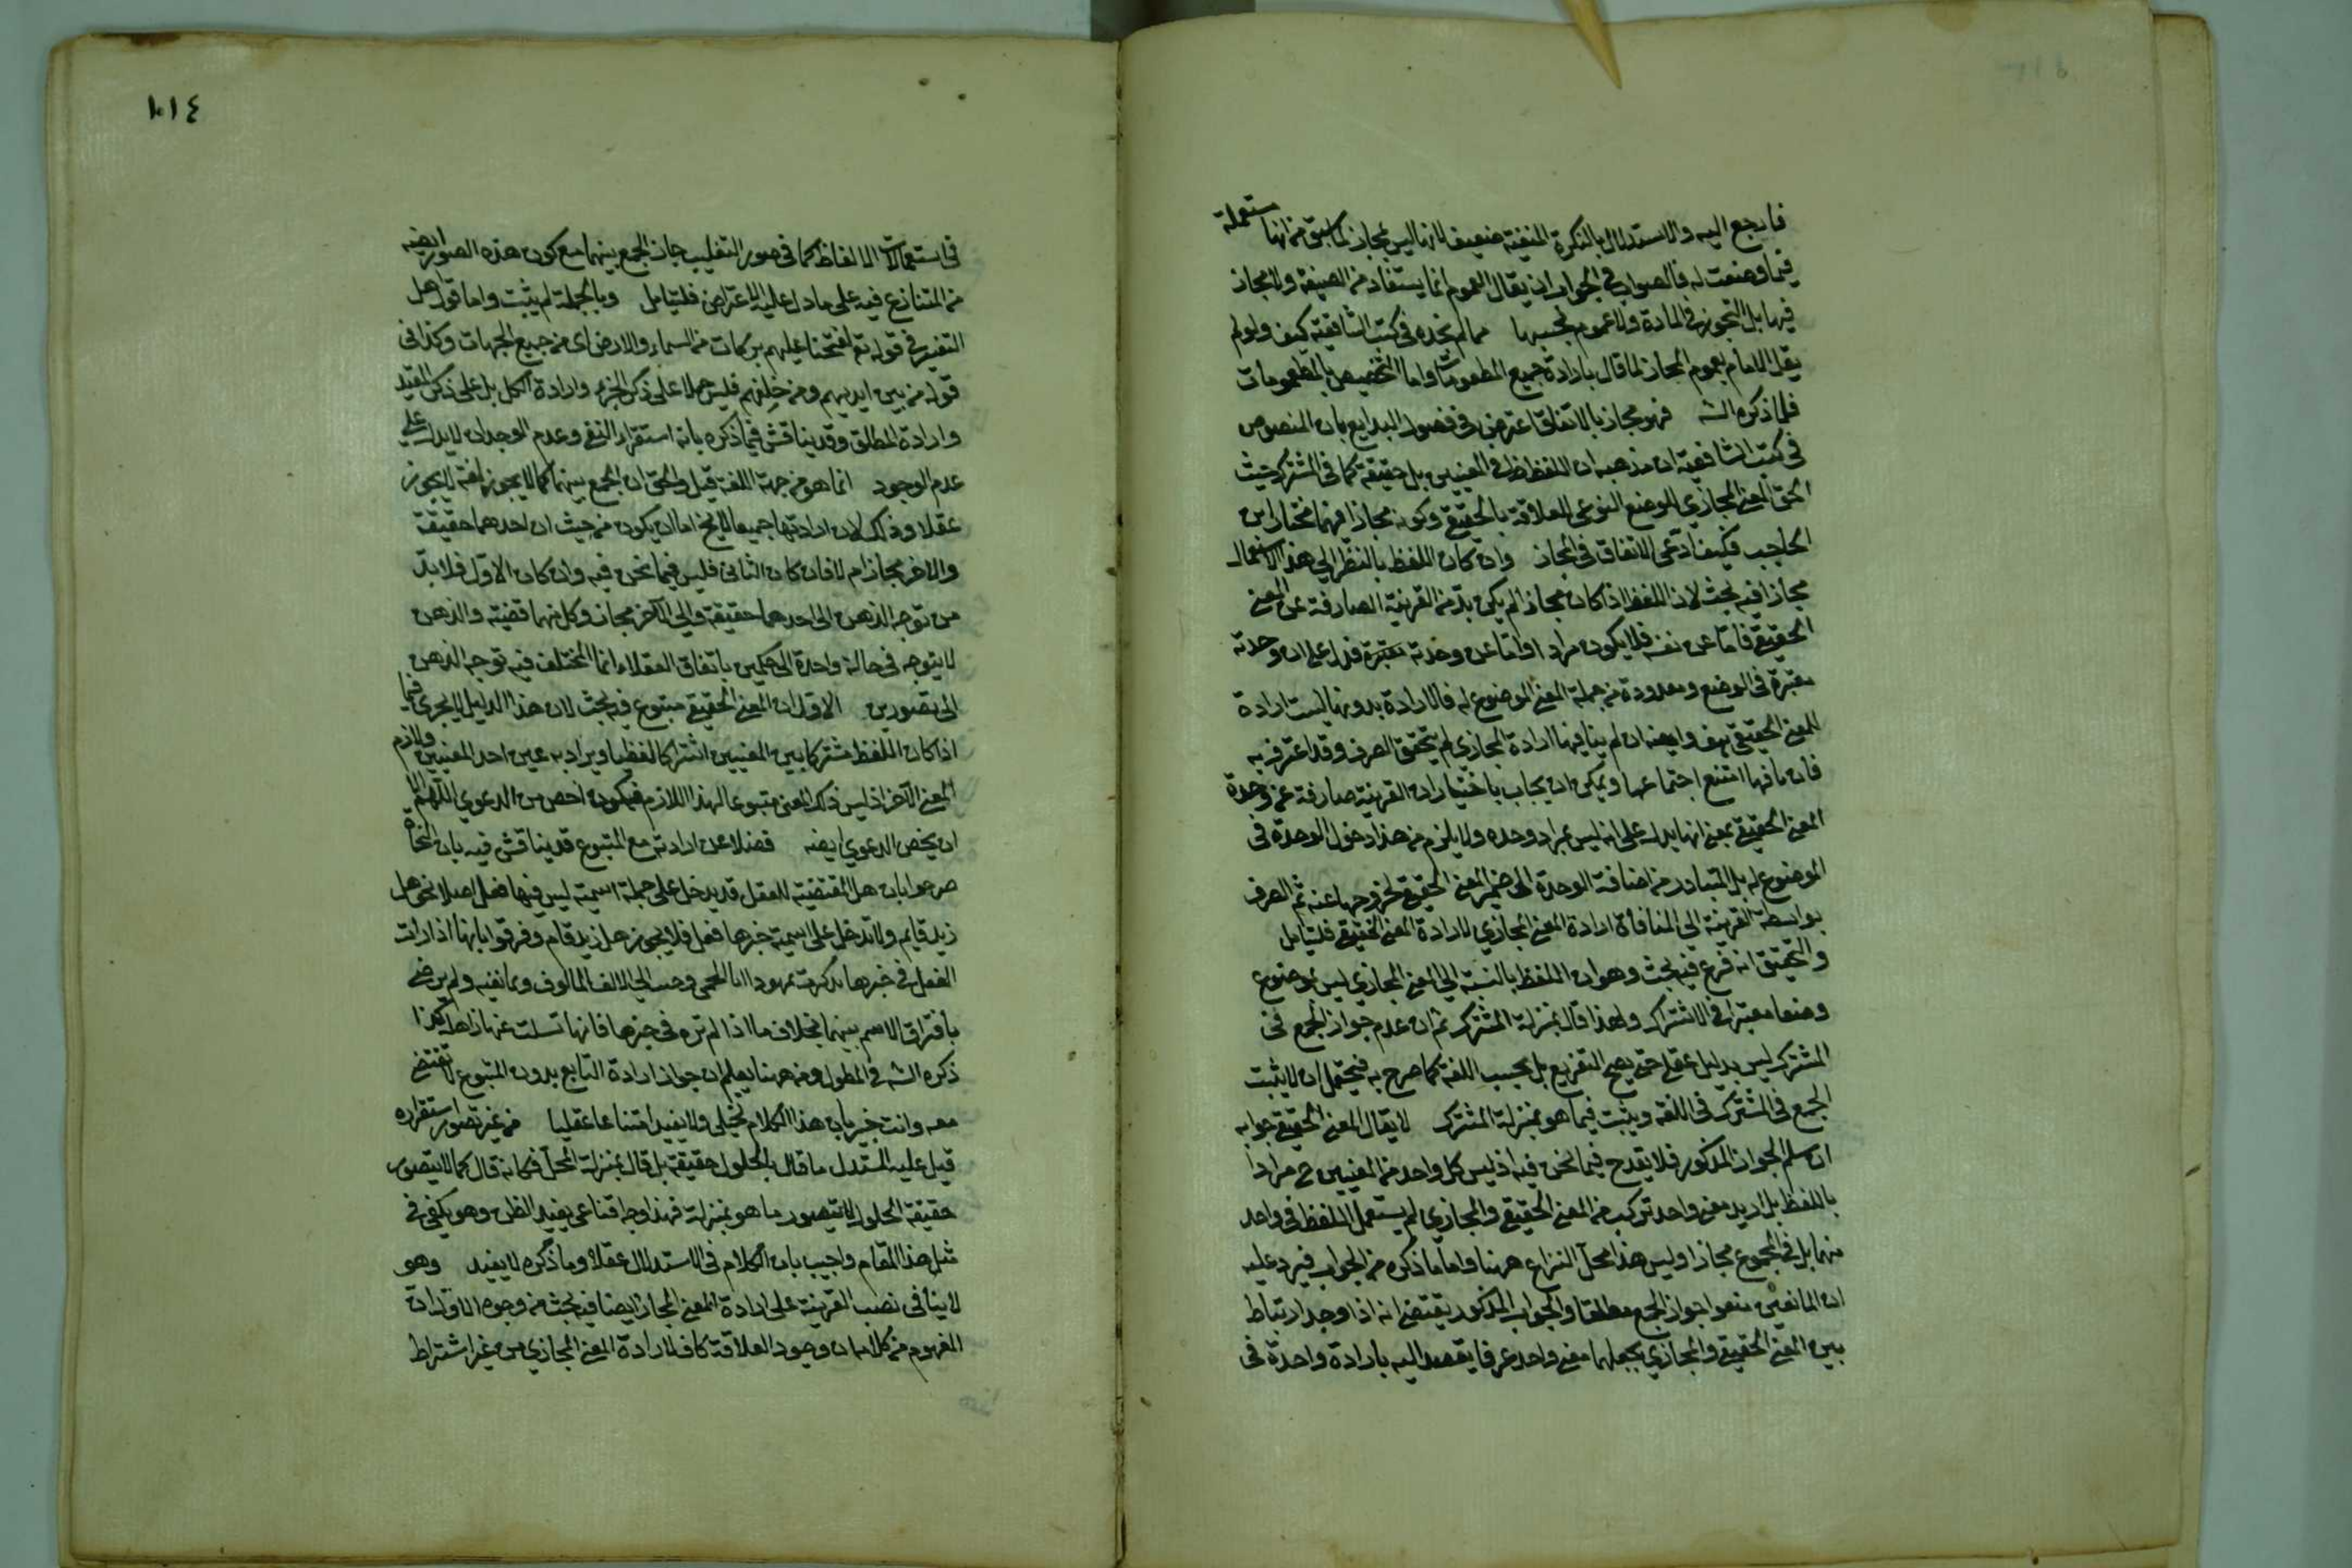 فارجع اليه والاستدلال بالنكرة المنفية ضعيف لانها ليس بمجاز لما سبق من انها مستعملة
فيما وضعت له فالصواب في الجواب ان يقال العموم انما يستفاد من الصيغة ولا مجاز
فيها بل التجوز في المادة ولا عموم بحسبها مما لم نجده في كتب الشافعية كيف ولو لم
يقل الامام بعموم المجاز لما قال بارادة جميع المطعومات واما التخصيص بالمطعومات
فلما ذكره الشه فهو مجاز بالاتفاق اعترض في فصول البدايع بان المنصوص
في كتب الشافعية ان مذهبه ان اللفظ في المعنيين بل حقيقة كما في المشترك حيث
الحق المعنى المجازي الموضع النوعي للعلاقة بالحقيقي وكونه مجازا فيهما مختار ابن
الحاجب فكيف ادعى الاتفاق في المجاز وان كان اللفظ بالنظر الى هذا الاستعمال
مجازا فيه بحث لان اللفظ اذا كان مجازا لم يكن بد من القرينة الصارفة عن المعنى
الحقيقي فاما عن نفسه فلا يكون مرادا واما عن وحدته معتبرة فدل على ان وحدته
معتبرة في الوضع ومعدودة من جملة المعنى الموضوع له فالارادة بدونها ليست ارادة
للمعنى الحقيقي وايضه ان لم ينافها ارادة المجازي لم يتحقق الصرف وقد اعترف به
فان نافها امتنع اجتماعهما ويمكن ان يجاب باختيار ان القرينة صارفة عن وحدة
المعنى الحقيقي بمعنى انها يدل على انه ليس بمراد وحده ولا يلزم من هذا دخول الوحدة في
الموضوع له بل المتبادر من اضافة الوحدة الى ضمير المعنى الحقيقي خروجها عنه ثم الصرف
بواسطة القرينة الى المنافاة ارادة المعنى المجازي لارادة المعنى الحقيقي فليتامل
والتحقيق انه فرع فيه بحث وهو ان اللفظ بالنسبة الى المعنى المجازي ليس بموضوع
وضعا معتبرا في الاشتراك ولهذا قال بمنزلة المشترك ثم ان عدم جواز الجمع في
المشترك ليس بدليل عقلي حتى يصح التفريع بل بحسب اللغة كما صرح به فيحتمل ان لا يثبت
الجمع في المشترك في اللغة ويثبت فيما هو بمنزلة المشترك لا يقال المعنى الحقيقي جوابه
ان سلم الجواز المذكور فلا يقدح فيما نحن فيه اذ ليس كل واحد من المعنيين ح مرادا
باللفظ بل اريد معنى واحد تركب من المعنى الحقيقي والمجازي لم يستعمل اللفظ في واحد
منهما بل في المجموع مجازا وليس هذا محل النزاع ههنا واما ما ذكره من الجواب فيرد عليه
ان المانعين منعوا جواز الجمع مطلقا والجواب المذكور يقتضي انه اذا وجد ارتباط
بين المعنى الحقيقي والمجازي يجعلهما معنى واحد عرفا يقصد اليه بارادة واحدة في
١٠١٤
في استعمالات الالفاظ كما في صور التغليب جاز الجمع بينهما مع كون هذه الصور ايضه
من المتنازع فيه على ما دل عليه الاعتراض فليتامل وبالجملة لم يثبت واما قول اهل
التفسير في قوله تع لفتحنا عليهم بركات من السماء والارض اى من جميع الجهات وكذا في
قوله من بين ايديهم ومن خلفهم فليس حملا على ذكر الجزء وارادة الكل بل على ذكر المقيد
وارادة المطلق وقد يناقش فيما ذكره بانه استقراء النفي وعدم الوجدان لا يدل على
عدم الوجود انما هو من جهة اللغة قيل والحق ان الجمع بينهما كما لا يجوز لغة لا يجوز
عقلا وذلك لان ارادتهما جميعا لا يخ اما ان يكون من حيث ان احدهما حقيقة
والاخر مجاز ام لا فان كان الثاني فليس فيما نحن فيه وان كان الاول فلا بد
من توجه الذهن الى احدهما حقيقة والى الآخر مجاز وكل منهما قضية والذهن
لا يتوجه في حالة واحدة الى حكمين باتفاق العقلاء انما المختلف فيه توجه الذهن
الى تصورين الاول ان المعنى الحقيقي متبوع فيه بحث لان هذا الدليل لا يجرى فيما
اذا كان اللفظ مشتركا بين المعنيين اشتراكا لفظيا ويراد به عين احد المعنيين ولازم
المعنى الآخر اذ ليس ذلك المعنى متبوعا لهذا اللازم فيكون اخص من الدعوى اللهم الا
ان يخص الدعوى ايضه فضلا عن ارادته مع المتبوع قد يناقش فيه بان النحاة
صرحوا بان هل المقتضية للفعل قد يدخل على جملة اسمية ليس فيها فعل اصلا نحو هل
زيد قايم ولا تدخل على اسمية خبرها فعل فلا يجوز هل زيد قام وفرقوا بانها اذا رات
الفعل في خبرها تذكرت عهودا بالحمى وحنت الى الالف المالوف وعانقته ولم يرض
بافتراق الاسم بينهما بخلاف ما اذا لم تره في خبرها فانها تسلت عنه ذاهلة كذا
ذكره الشه في المطول ومن ههنا يعلم ان جواز ارادة التابع بدون المتبوع لا تقتضي
معه وانت خبير بان هذا الكلام تخيلي ولا يفيد امتناعا عقليا من غير تصور استقراره
قيل عليه المستدل ما قال بالحلول حقيقة بل قال بمنزلة المحل فكانه قال كما لا يتصور
حقيقة الحلول لا يتصور ما هو بمنزلة فهذا وجه اقناعي يفيد الظن وهو يكفي في
مثل هذا المقام واجيب بان الكلام في الاستدلال عقلا وما ذكره لا يفيد وهو
لا ينافى نصب القرينة على ارادة المعنى المجازي ايضا فيه بحث من وجوه الاول ان
المفهوم من كلامه ان وجود العلاقة كاف لارادة المعنى المجازي من غير اشتراط